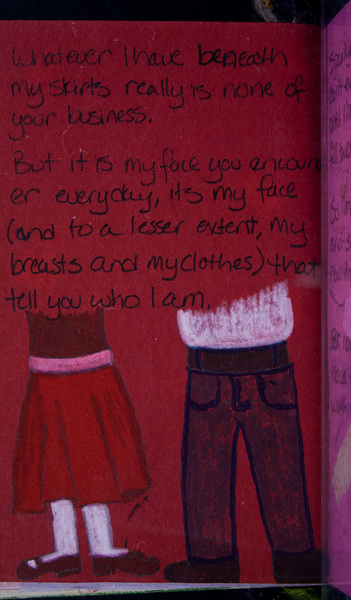 Whatever I have beneath
my skirts really is none of
your business.
But it is my face you encoun
er everyday, its my face
(and to a lesser extent, my
breasts and my clothes) that
tell you who I am.